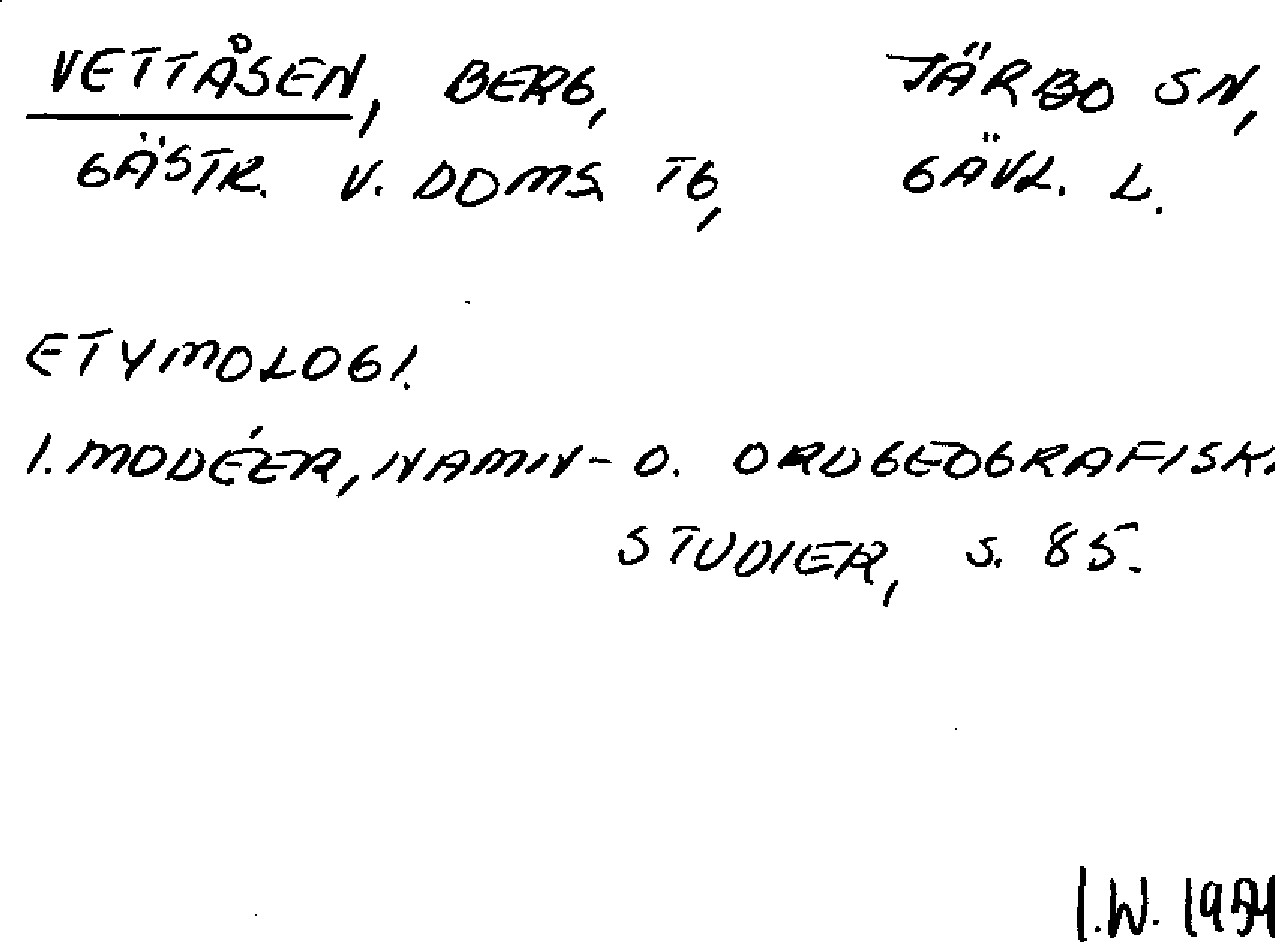 VETTÅSEN, BERG, JÄRBO SN,
GÄSTR. V. DOMS. TG, GÄVL. L.
ETYMOLOGI.
I. MODÉER, NAMN- O. ORDGEOGRAFISKA
STUDIER, S. 85.
I.W.